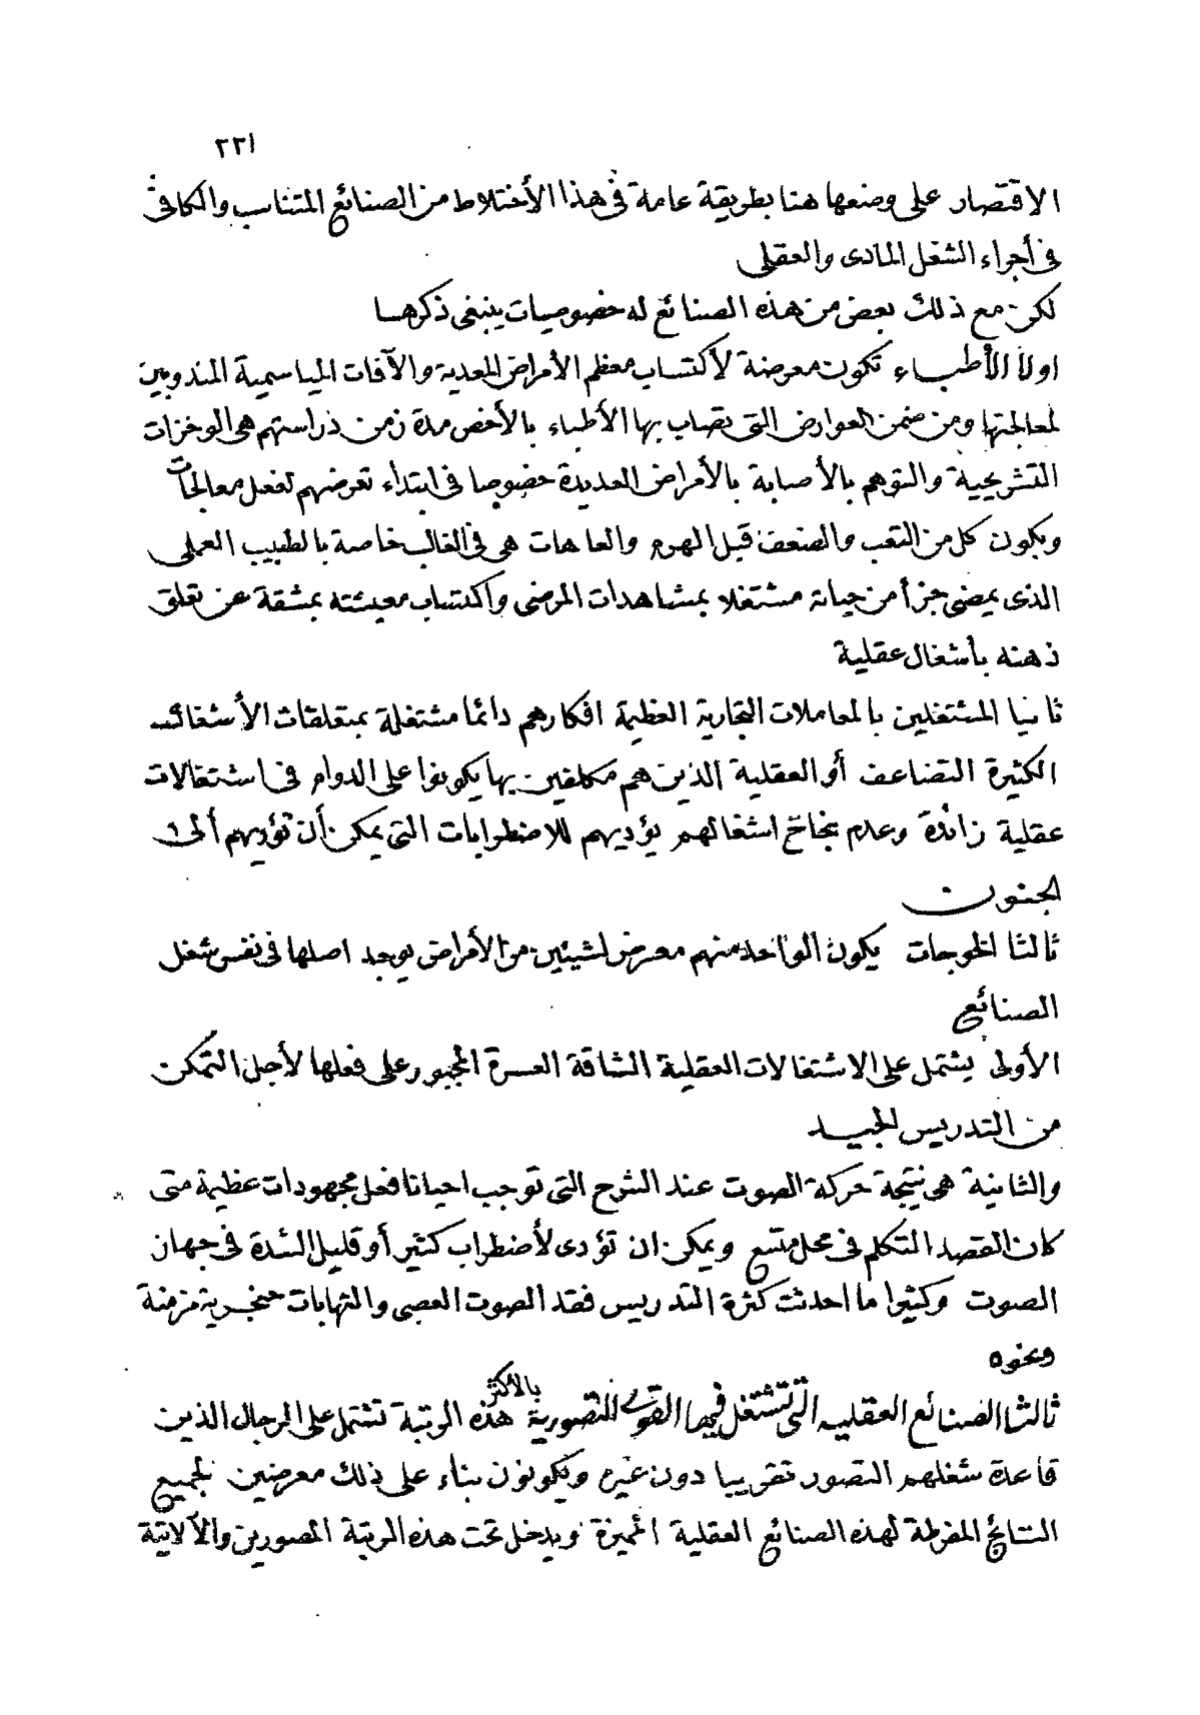 ٢٢١
الاقتصار على وضعها هنا بطريقة عامة فى هذا الأختلاط من الصنائع المتناسب والكافى
فى أجراء الشغل المادى والعقلى
لكن مع ذلك بعض من هذه الصنائع له خصوصيات ينبغى ذكرها
اولا الأطباء تكون معرضة لأكتساب معظم الأمراض المعدية والآفات المياسمية المندوبين
لمعالجتها ومن ضمن العوارض التى تصاب بها الأطباء بالأخص مدة زمن دراستهم هى الوخزات
التشريحية والتوهم بالأصابة بالأمراض العديدة خصوصا فى ابتداء تعرضهم لفعل معالجات
ويكون كل من التعب والضعف قبل الهرم والعاهات هى فى الغالب خاصة بالطبيب العملى
الذى يمضى جزأ من حياته مشتغلا بمشاهدات المرضى واكتساب معيشته بمشقة عن تعلق
ذهنه بأشغال عقلية
ثانيا المشتغلين بالمعاملات التجارية العظيمة افكارهم دائما مشتغلة بمتعلقات الأشغال
الكثيرة التضاعف أو العقلية الذين هم مكلفين بها يكونوا على الدوام فى اشتغالات
عقلية زائدة وعدم نجاح اشغالهم يؤديهم للاضطرابات التى يمكن أن تؤديهم ألى
الجنون
ثالثا الخوجات يكون الواحد منهم معرض لشيئين من الأمراض يوجد اصلها فى نفس شغل
الصنائع
الأولى يشتمل على الاشتغالات العقلية الشاقة العسرة المجبور على فعلها لأجل التمكن
من التدريس الجيد
والثانية هى نتيجة حركة الصوت عند الشرح التى توجب احيانا فعل مجهودات عظيمة متى
كان القصد التكلم فى محل متسع ويمكن ان تؤدى لأضطراب كثير أو قليل الشدة فى جهاز
الصوت وكثيرا ما احدثت كثرة التدريس فقد الصوت العصبى والتهابات حنجرية مزمنة
ونحوه
ثالثا الصنائع العقليه التى تشتغل فيها القوى التصورية بالأكثر هذه الرتبة تشتمل على الرجال الذين
قاعدة شغلهم التصور تقريبا دون غيره ويكونون بناء على ذلك معرضين لجميع
النتائج المفرطة لهذه الصنائع العقلية المميزة ويدخل تحت هذه الرتبة المصورين والآلاتية